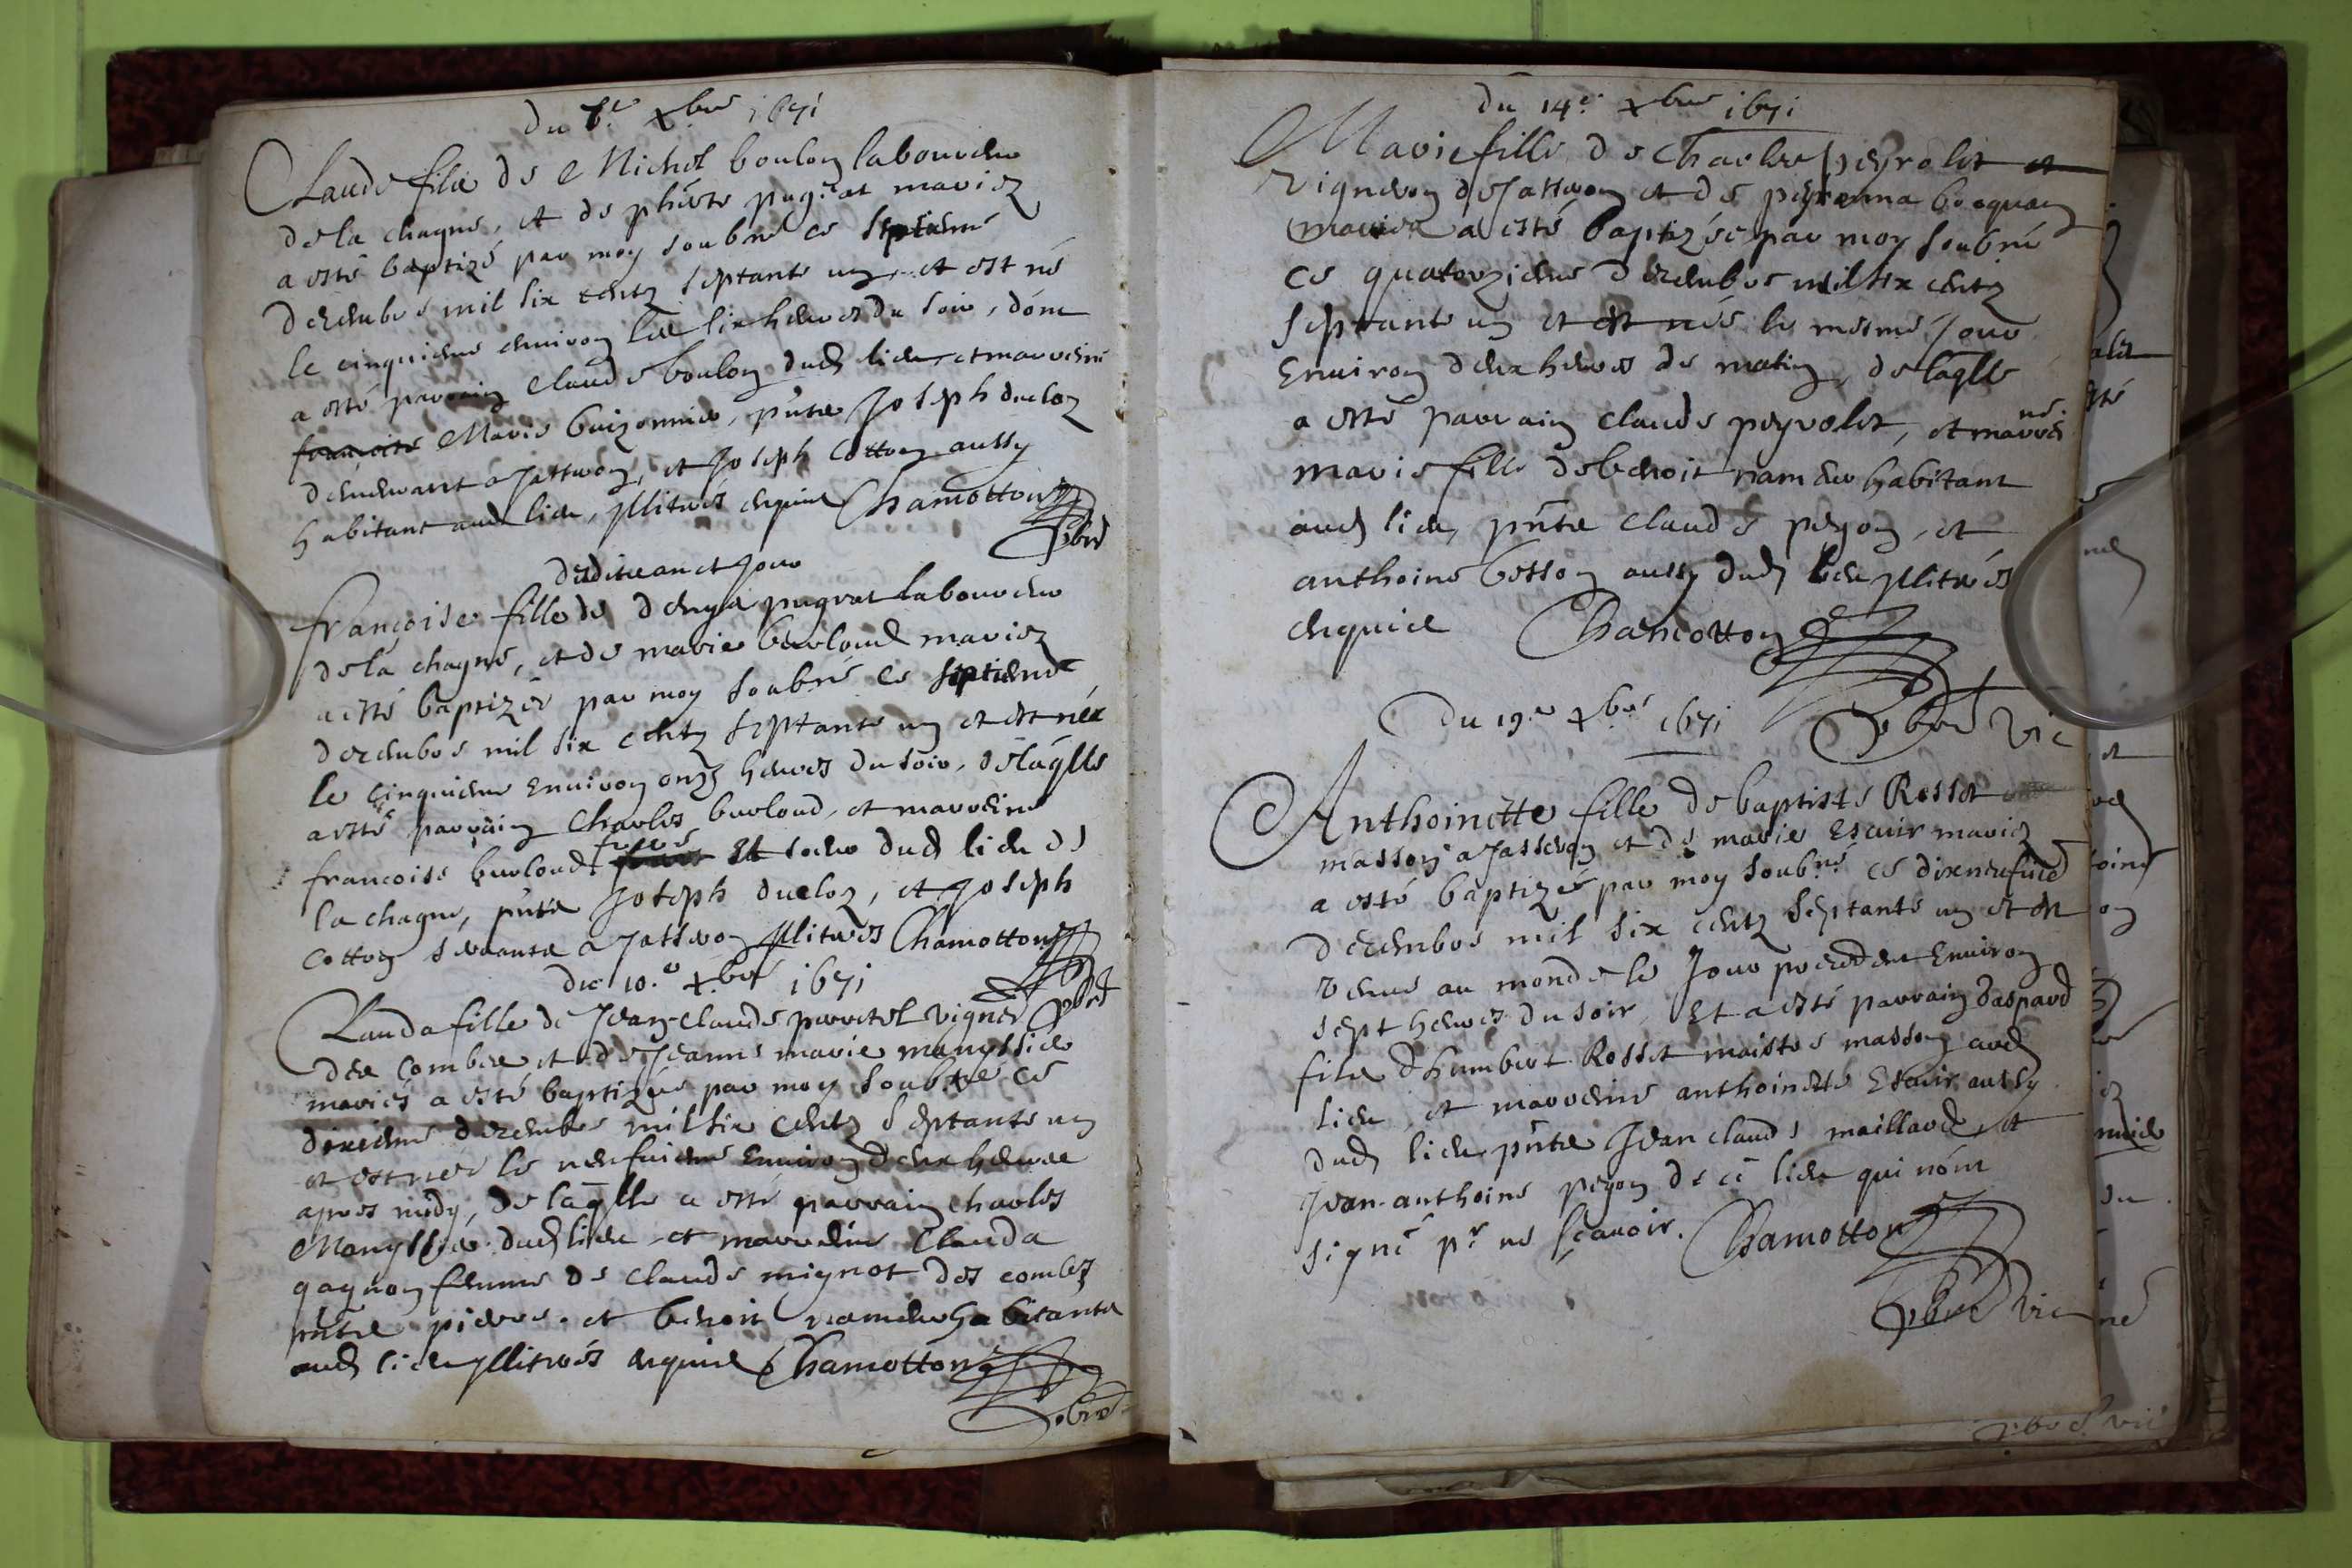 Du 7e xbre 1671
Claude filz de Michel boulon laboureur
de la chagne, et de pierrete pugeat mariez
a esté baptizé par moy soubné ce septieme
decembre mil six centz septante un, et est né
le cinquieme environ les six heures du soir, dont
a esté parrain Claude boulon dud lieu, et marreine
francoise Marie buizonnier, pnts Joseph ducloz
demeurant a Jasseron, et Joseph Cotton aussy
habitant aud lieu, illitrés enquis Chamotton
pbre
Desdits an et Jour
françoise fille de denys pugeat laboureur
de la chagne, et de marie burloud mariez
a esté baptizée par moy soubné ce septieme
decembre mil six centz septante un et est née
le cinquieme environ onze heures du soir, de laqlle
a esté parrain Charles burloud, et marreine
francoise burloud frere et soeur dud lieu de
la chagne, pnts Joseph ducloz, et Joseph
Cotton servants a Jasseron illitrés Chamotton
Du 10.e xbre 1671 pbre
Clauda fille de Jean-Claude perretel vigner
des Combes et de Jeanne marie
mariés a esté baptizée par moy soubné ce
dixieme decembre mil six centz septante un
et est née le neufuieme environ deux heures
apres midy, de laqlle a esté parrain charles
dud lieu et marreine Clauda
gagnon femme de Claude mignot des combes
pnts pierre. et benoit rameur habitants
aud lieu illitrés enquis Chamotton
pbre
Du 14e xbre 1671
Marie fille de Charles peyrolet et
vigneron de Jasseron et de peronna
mariez a esté baptizée par moy soubné
ce quatorzieme decembre mil six centz
septante un et est née le mesme Jour
Environ deux heures de matin, de laqlle
a esté parrain Claude peyrolet, et marrei
ne
marie fille de benoit rameur habitant
aud lieu, pnts Claude peyon, et
anthoine besson aussy dud lieu illitrés
enquis Chamotton
pbre vic
Du 19.e xbre 1671
Anthoinette fille de baptiste Rosset
masson a Jasseron et de marie Escuir mariez
a esté baptizée par moy soubné ce dixneufuie
decembre mil six centz septante un et est
venue au monde le Jour precedent Environ
sept heures du soir, Et a esté parrain Gaspard
filz d'humbert Rosset maistre masson aud
lieu, et marreine anthoinette Escuir aussy
dud lieu pnts Jean claude maillard, et
Jean-anthoine peyon de ce lieu qui nont
signé pr ne sçavoir. Chamotton
pbre vic